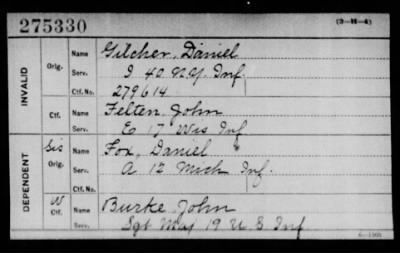 275330
(3-H-4)
INVALID
Orig.
Name Gilcher, Daniel
Serv. I 40 N.Y. Inf.
Ctf. No. 279614
Ctf.
Name Felten, John
Serv. E 17 Wis Inf
DEPENDENT
Sis
Orig.
Name Fox, Daniel
Serv. A 12 Mich Inf.
W
Ctf.
Name Burke, John
Serv. Sgt Maj 19 U S Inf